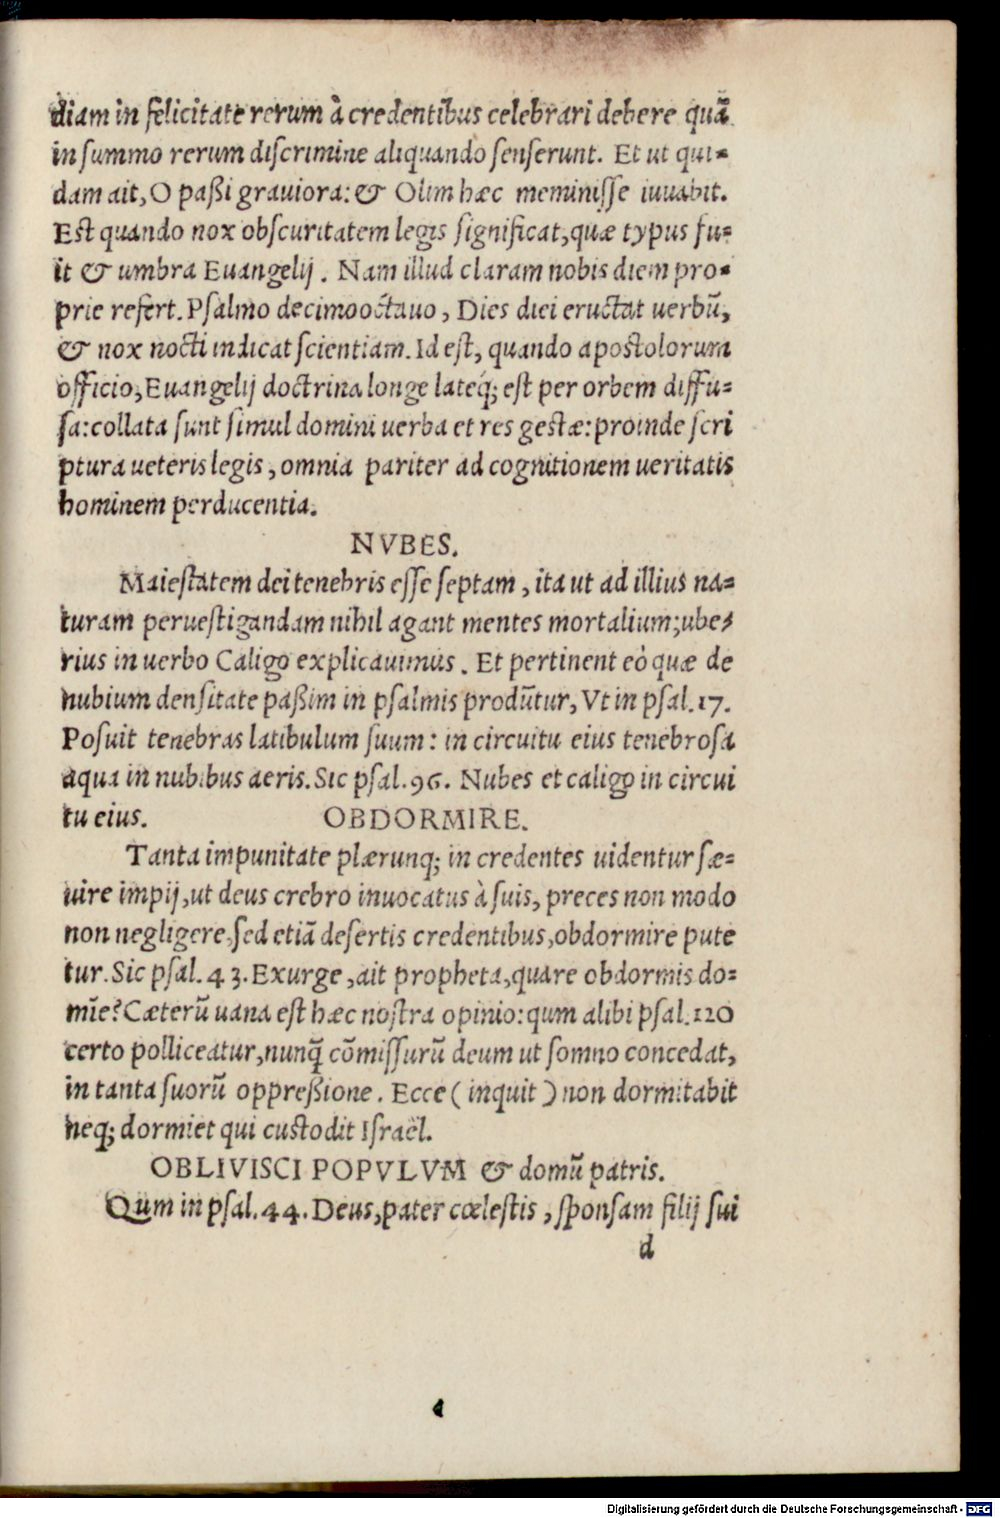 diam in felicitate rerum à credentibus celebrari debere quā
in summo rerum discrimine aliquando senserunt. Et ut qui-
dam ait, O paßi graviora: & Olim hæc meminisse iuuabit.
Est quando nox obscuritatem legis significat, quæ typus fu-
it & umbra Euangelij. Nam illud claram nobis diem pro-
prie refert. Psalmo decimooctauo, Dies diei eructat uerbū,
& nox nocti indicat scientiam. Id est, quando apostolorum
officio, Euangelij doctrina longe lateq; est per orbem diffu-
sa: collata sunt simul domini uerba et res gestæ: proinde scri
ptura ueteris legis, omnia pariter ad cognitionem ueritatis
hominem perducentia.
NVBES.
Maiestatem dei tenebris esse septam, ita ut ad illius na-
turam peruestigandam nihil agant mentes mortalium; ube-
rius in uerbo Caligo explicauimus. Et pertinent eò quæ de
nubium densitate paßim in psalmis produ̅tur, Vt in psal. 17.
Posuit tenebras latibulum suum: in circuitu eius tenebrosa
aqua in nubibus aeris. Sic psal. 96. Nubes et caligo in circui
tu eius. OBDORMIRE.
Tanta impunitate plærunq; in credentes uidentur sæ-
uire impij, ut deus crebro inuocatus à suis, preces non modo
non negligere, sed etiā desertis credentibus, obdormire pute
tur. Sic psal. 43. Exurge, ait propheta, quare obdormis do-
mīe? Cæterū uana est hæc nostra opinio: qum alibi psal. 120
certo polliceatur, nunq̄ cōmissurū deum ut somno concedat,
in tanta suorū oppreßione. Ecce (inquit) non dormitabit
neq; dormiet qui custodit Israël.
OBLIVISCI POPVLVM & domū patris.
Qum in psal. 44. Deus, pater cœlestis, sponsam filij sui
d
Digitalisierung gefördert durch die Deutsche Forschungsgemeinschaft - DFG